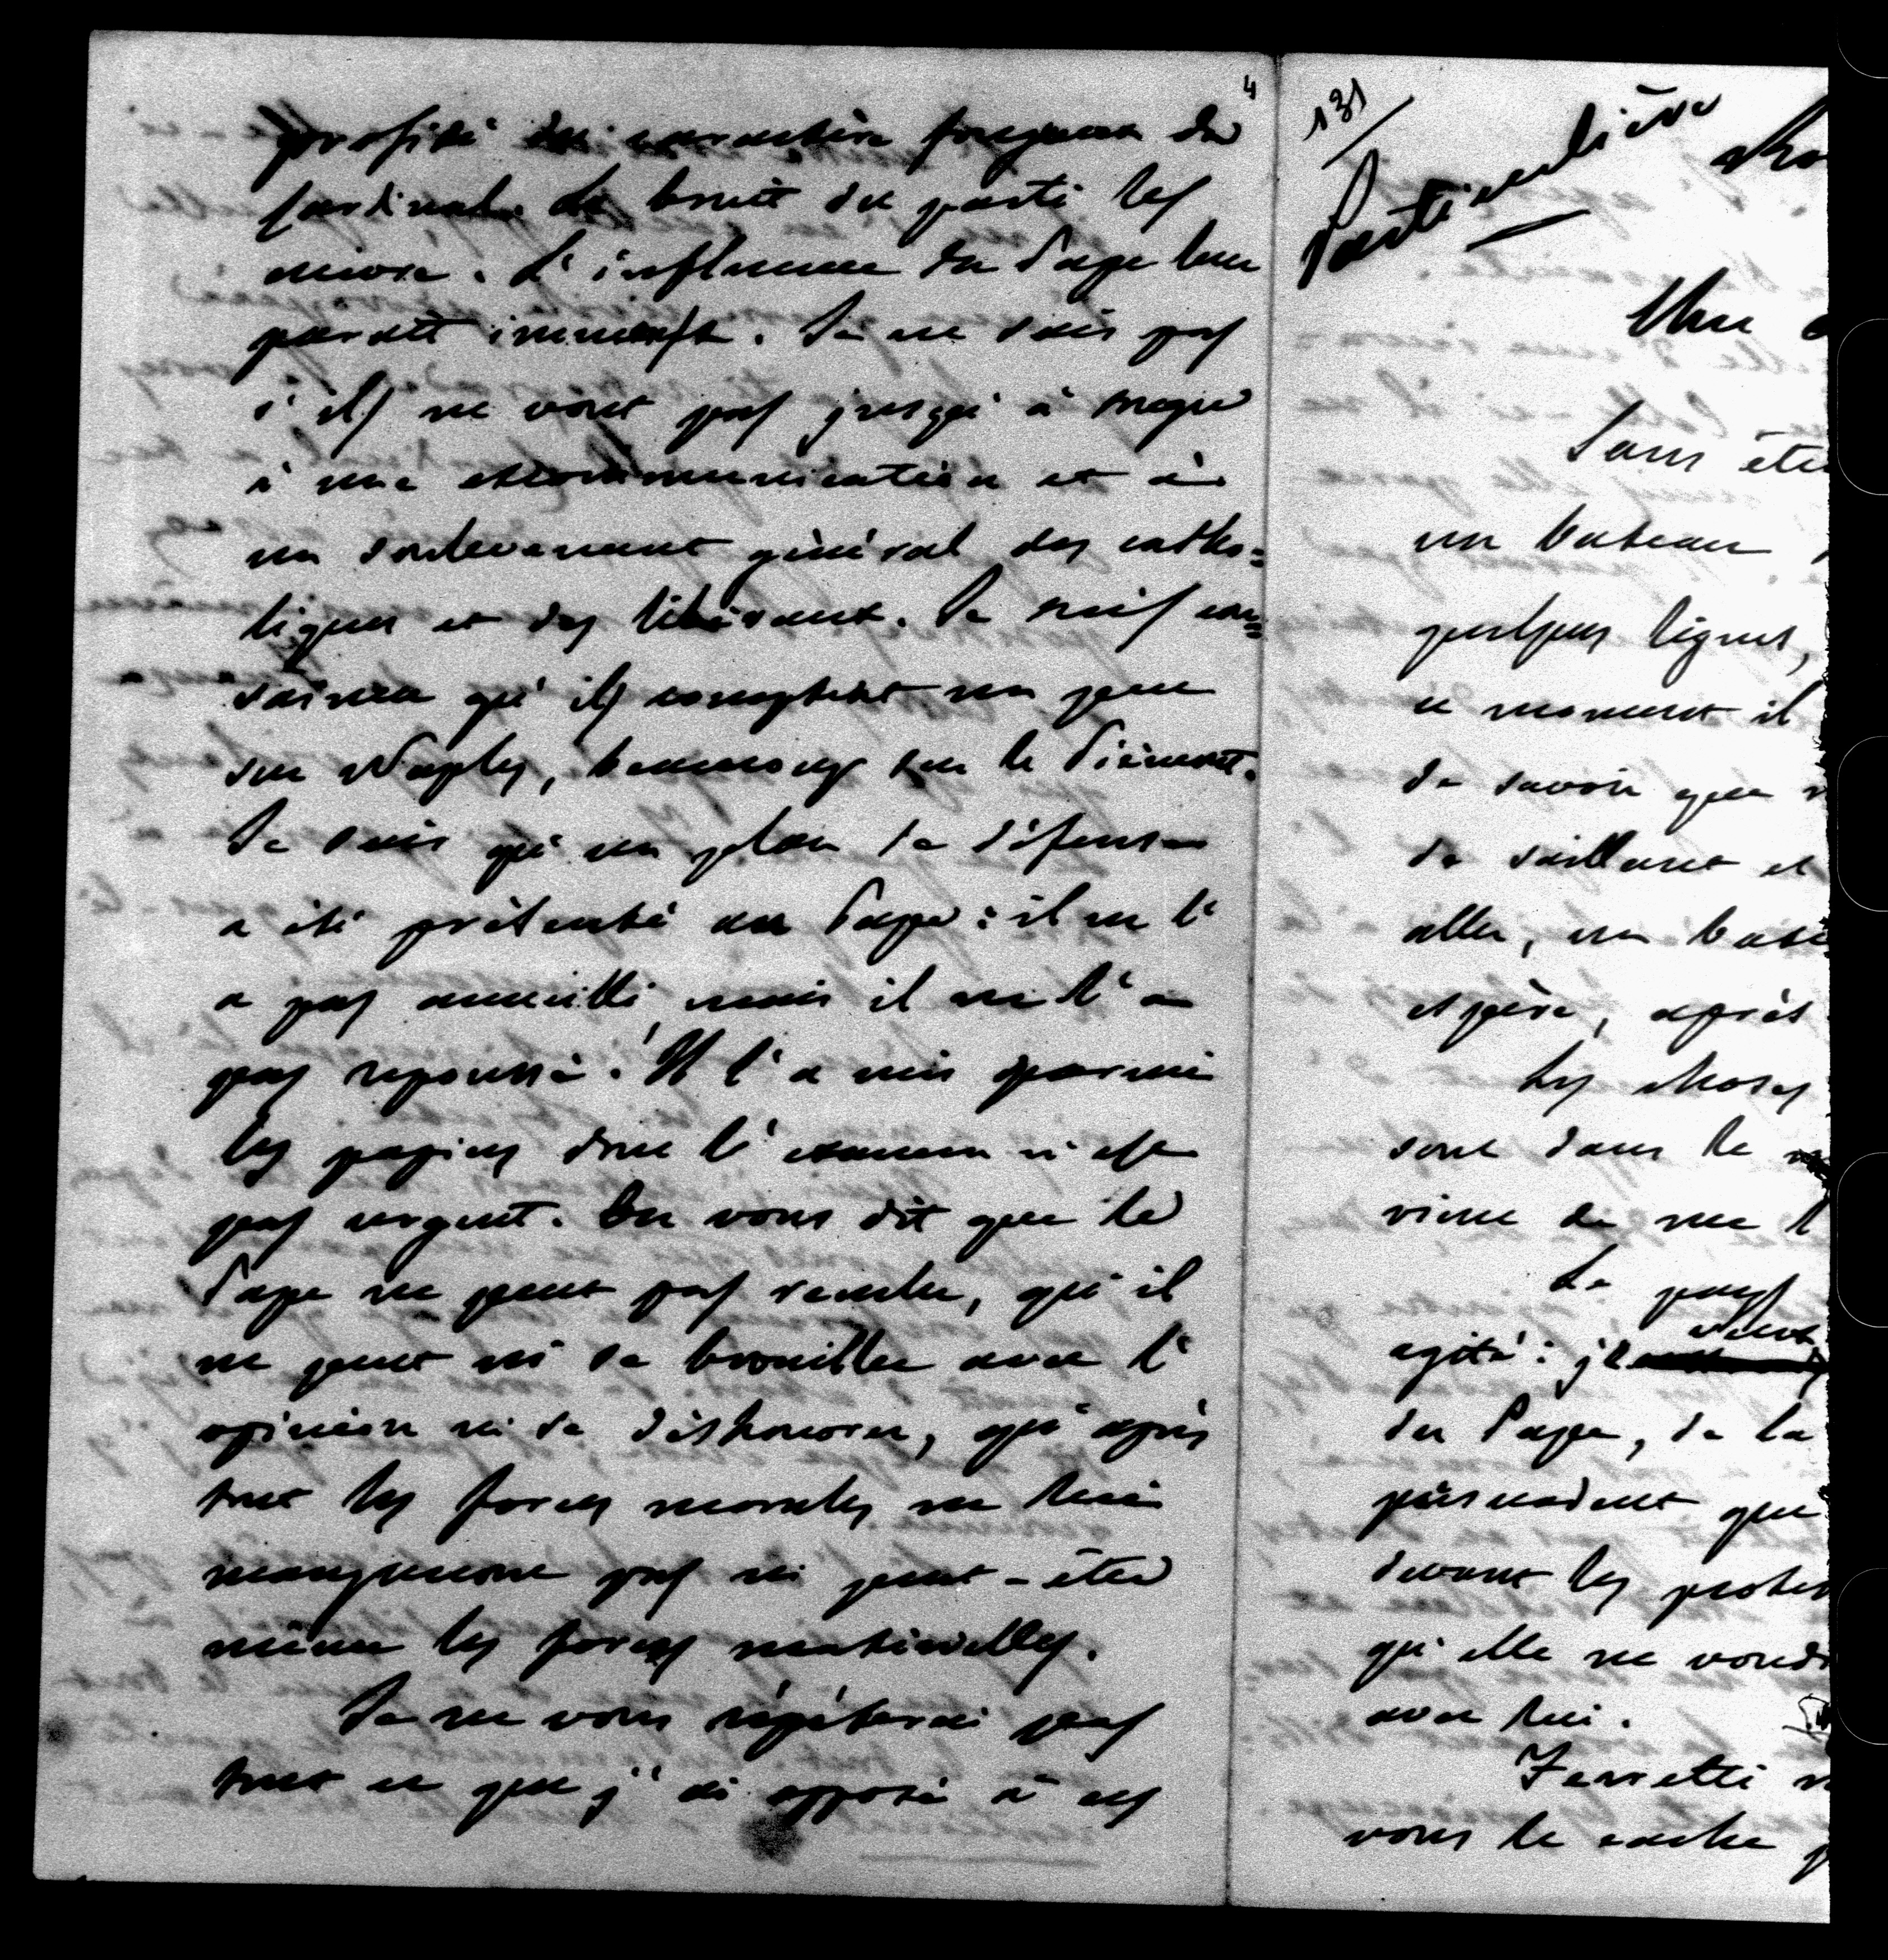 4
profité du caractère fougueux du
Cardinal. Le bruit du parti les
enivre. L'influence du Pape leur
paraît immense. Je ne sais pas
s'ils ne vont pas jusqu'à
à une excommunication et à
un soulevement général des catho=
liques et des libéraux. Je suis con=
vaincu qu'ils comptent un peu
sur Naples, beaucoup sur le Piémont.
Je sais qu'un plan de défense
a été présenté au Pape: il ne l'
a pas accueilli mais il ne l'a
pas repoussé. Il l'a mis parmi
les papiers dont l'examen n'est
pas urgent. On vous dit que le
Pape ne peut pas reculer, qu'il
ne peut ni se brouiller avec l'
opinion ni se déshonorer, qu'après
tout les forces morales ne lui
manqueront pas ni peut-être
même les forces matérielles.
Je ne vous répéterai pas
tout ce que j'ai opposé à ces
131
Particulière
Sans être
un bateau
quelques lignes,
ce moment il
de savoir que
de saillant et
aller, un
espère, après
Les choses
sont dans le
vient de me l
Le pays
veux
agité: je
du Pape, de la
persuadent que
devant les
qu'elle ne
avec lui.
Ferretti
vous le cache